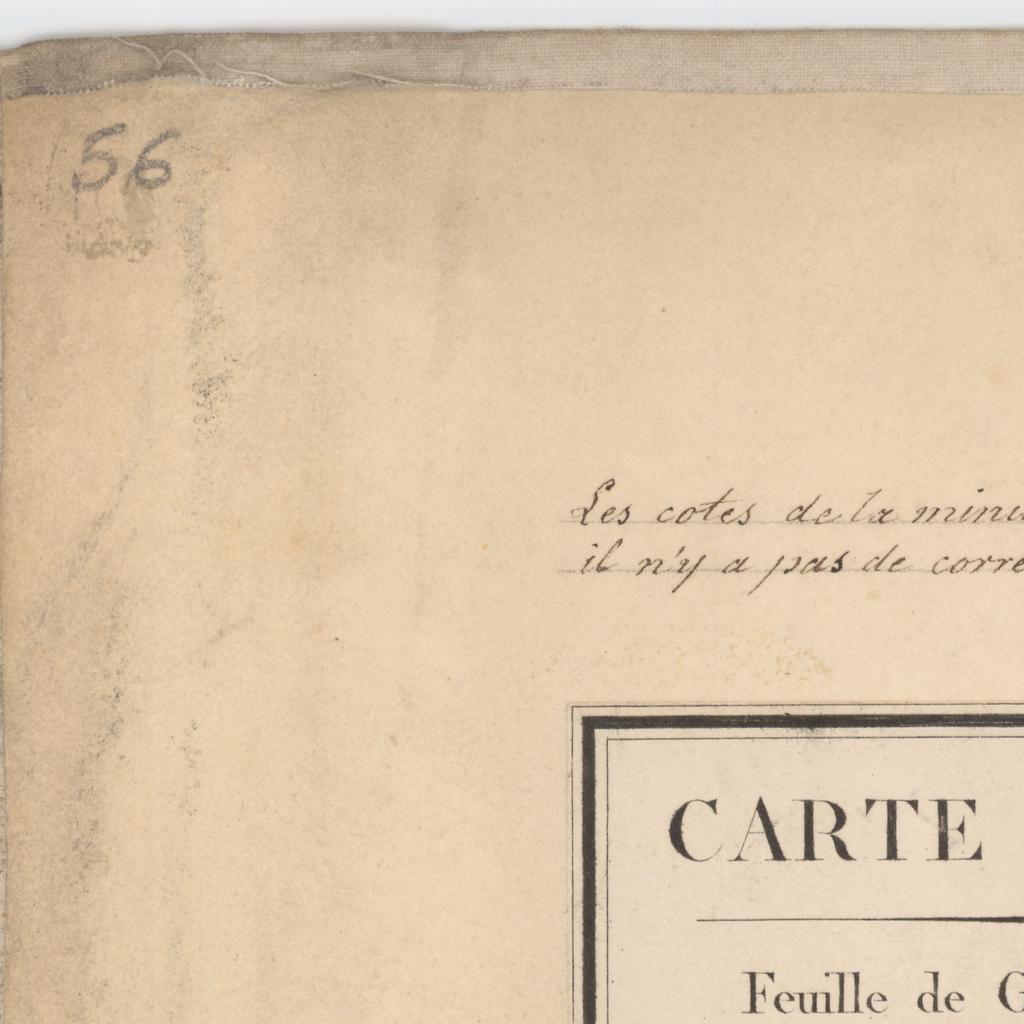 56
Les cotes de la minu
il n'y a pas de corre
CARTE
Feuille de G